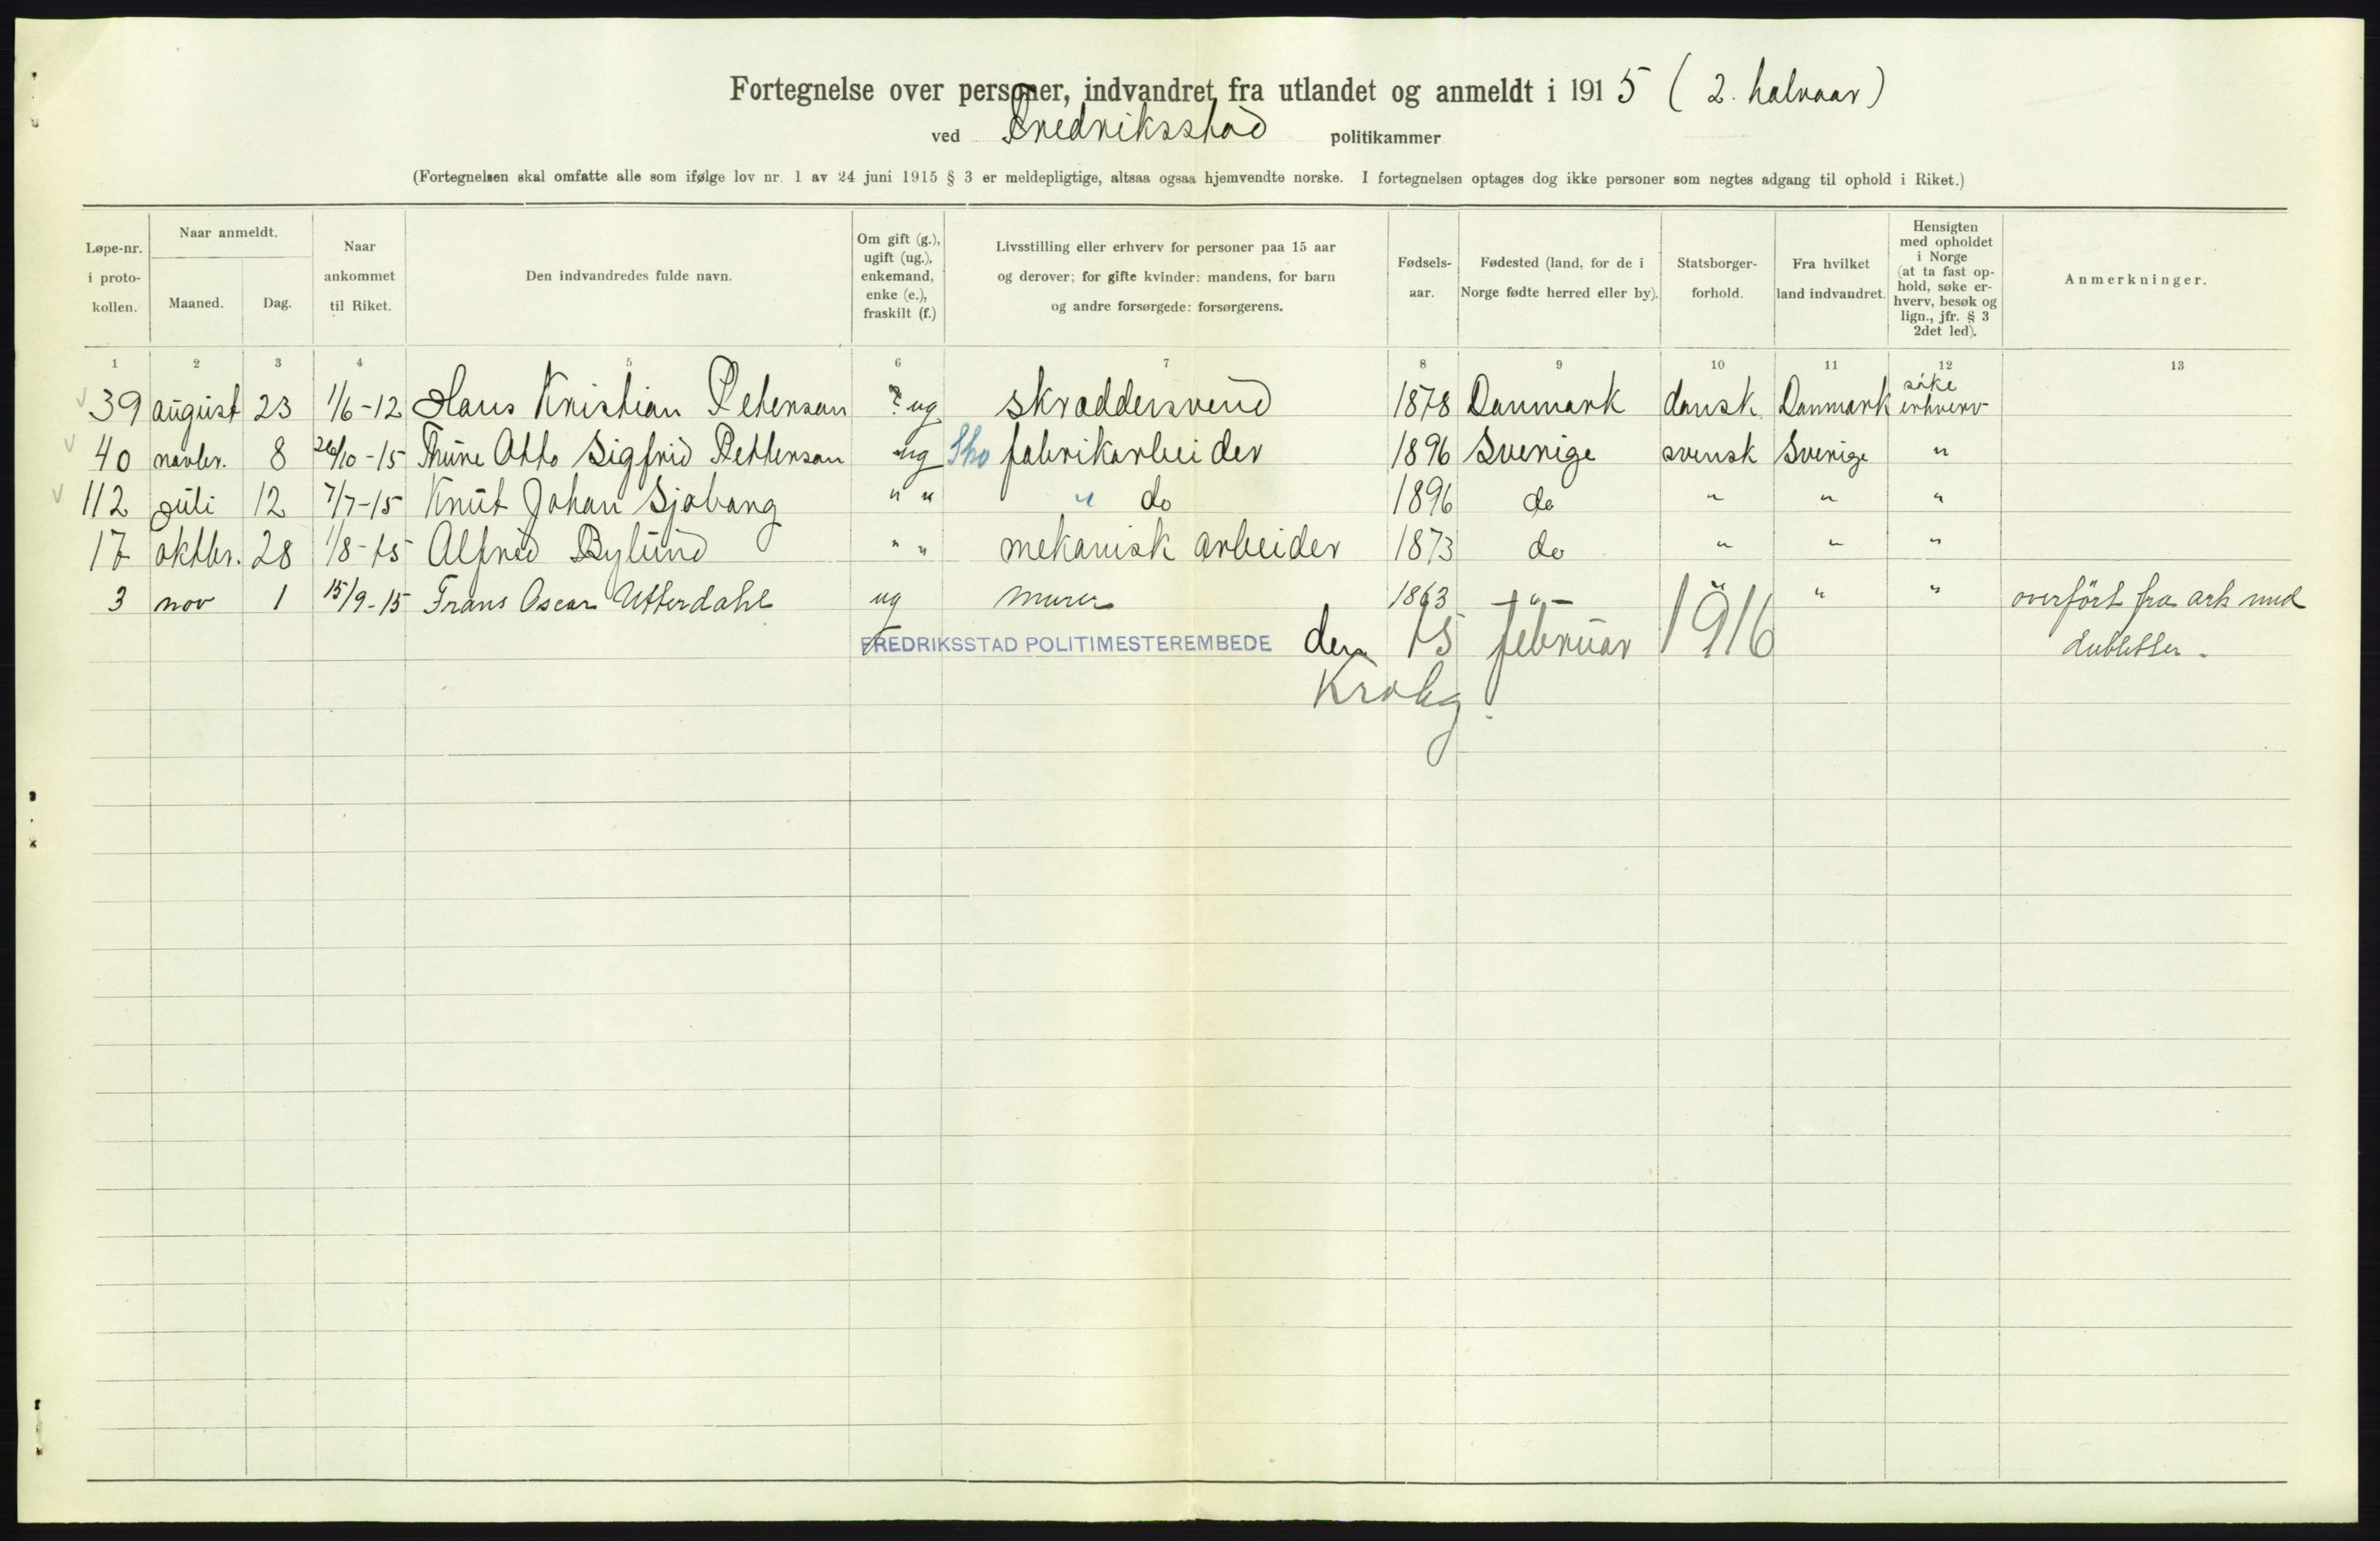 Fortegnelse over personer, indvandret fra utlandet og anmeldt i 1915 (2. halvaar)
ved Fredriksstad politikammer
(Fortegnelsen skal omfatte alle som ifølge lov nr. 1 av 24 juni 1915 § 3 er meldepligtige, altsaa ogsaa hjemvendte norske. I fortegnelsen optages dog ikke personer som negtes adgang til ophold i Riket.)
Løpe-nr.
i proto-
kollen.
Naar anmeldt.
Maaned. Dag.
Naar
ankommet
til Riket.
Den indvandredes fulde navn.
Om gift (g.),
ugift (ug.),
enkemand,
enke (e.),
fraskilt (f.)
Livsstilling eller erhverv for personer paa 15 aar
og derover; for gifte kvinder: mandens, for barn
og andre forsørgede: forsørgerens.
Fødsels-
aar.
Fødested (land, for de i
Norge fødte herred eller by).
Statsborger-
forhold.
Fra hvilket
land indvandret.
Hensigten
med opholdet
i Norge
(at ta fast op-
hold, søke er-
hverv, besøk og
lign., jfr. § 3
2det led).
Anmerkninger.
1 2 3 4 5 6 7 8 9 10 11 12 13
39 august 23 1/6-12 Hans Kristian Petersen ? ug skræddersvend 1878 Danmark dansk Danmark søke erhverv
40 novbr. 8 26/10-15 Thure Otto Sigfrid Pettersson ug fabrikarbeider 1896 Sverige svensk Sverige "
112 juli 12 7/7-15 Knut Johan Sjöberg " " " do 1896 do " " "
17 oktbr. 28 1/8-15 Alfred Bylund " " mekanisk arbeider 1873 do " " "
3 nov 1 15/9-15 Frans Oscar Utterdahl ug murer 1863 -"- " " " overført fra ark med
dubletter.
FREDRIKSSTAD POLITIMESTEREMBEDE den 15 februar 1916
Krohg.